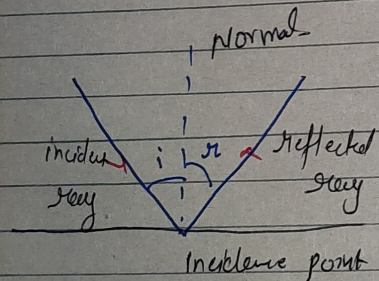 Normal
incident
ray
i
r
reflected
ray
Incidence point